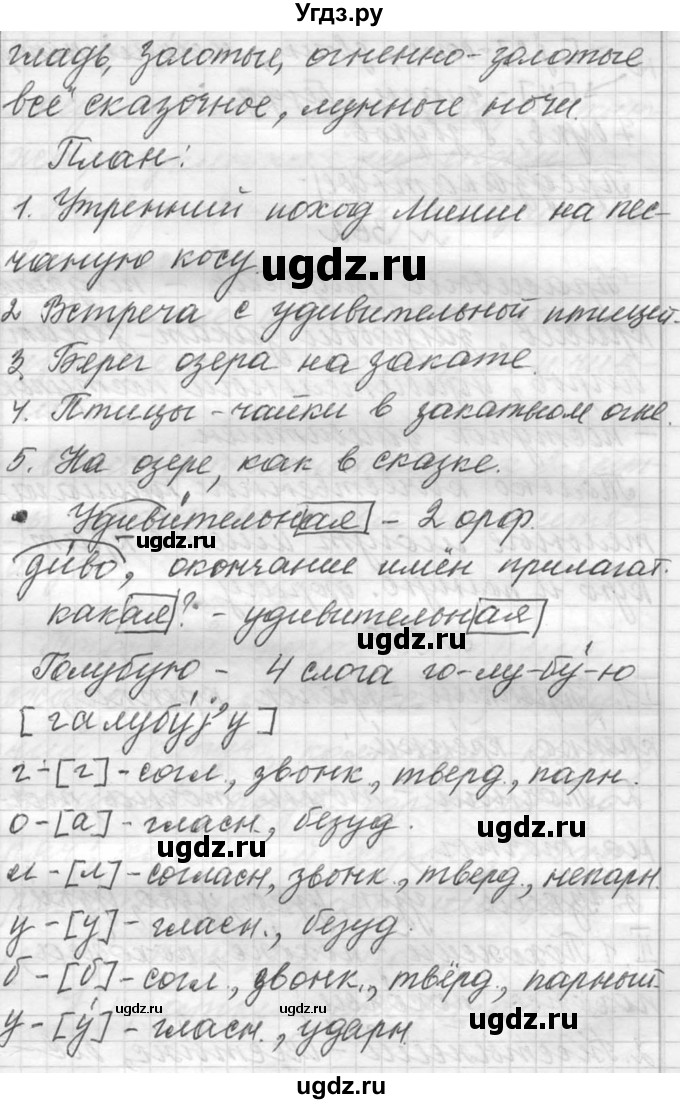 Угдз.ру
гладь, золотые, огненно-золотые
всё сказочное, лунные ночи.
План:
1. Утренний поход Мини на пес-
чаную косу
ugdz.ru
2 Встреча с удивительной птицей.
3. Берег озера на закате.
4. Птицы - чайки в закатном огне.
5. На озере, как в сказке.
ugdz.ru
Удиви́тельная - 2 орф.
ugdz.ru
ди́во, окончание имён прилагат.
какая? - удивительная
ugdz.ru
Голубую - 4 слога го-лу-бу́-ю
[галубу́j'у]
г - [г] - согл., звонк., тверд., парн.
о - [а] - гласн., безуд.
ugdz.ru
ugdz.ru
л - [л] - согласн, звонк., тверд., непарн.
у - [у] - гласн., безуд.
б - [б] - согл., звонк., твёрд., парный
у - [у́] - гласн., ударн.
ugdz.ru
ugdz.ru
ugdz.ru